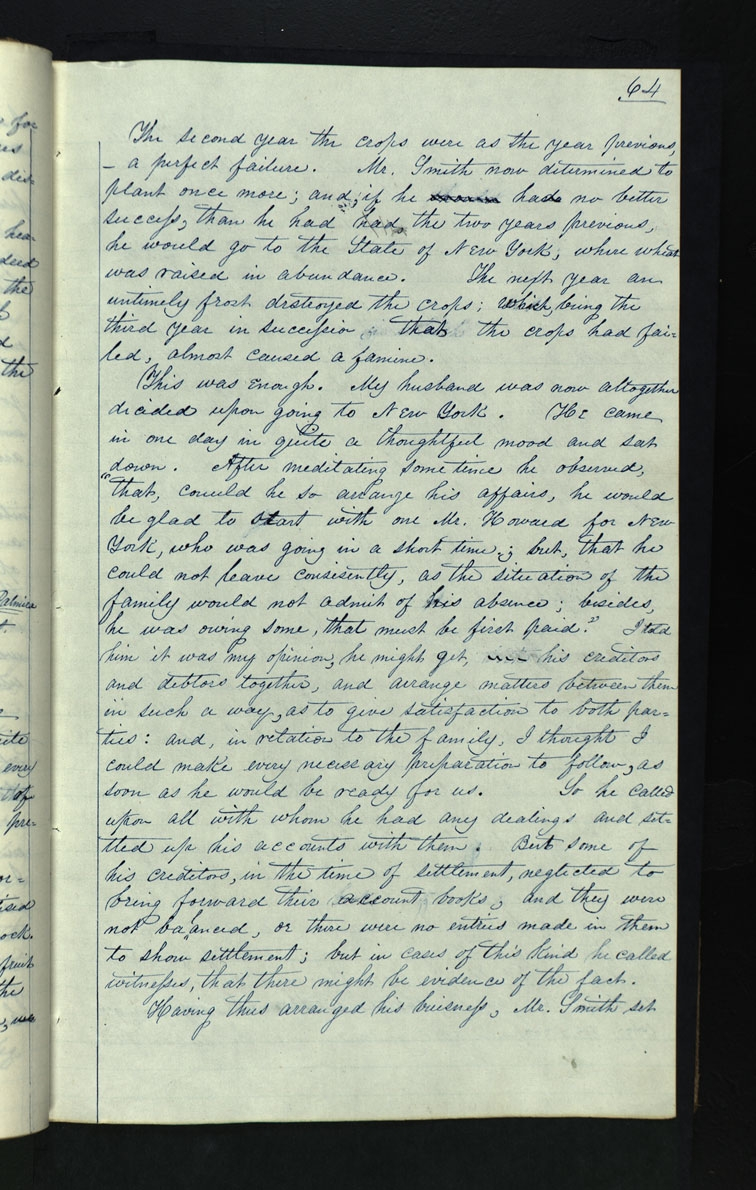 64
The second year the crops were as the year previous,
– a perfect failure. Mr. Smith now determined to
plant once more; and, if he had no better
success, than he had had the two years previous,
he would go to the State of New York; where wheat
was raised in abundance. The next year an
untimely frost destroyed the crops; which, being the
third year in succession that the crops had fai=
led, almost caused a famine.
This was enough. My husband was now altogether
decided upon going to New York. He came
in one day in quite a thoughtful mood and sat
down. After meditating some time he observed,
"that, could he so arrange his affairs, he would
be glad to start with one Mr. Howard for New
York, who was going in a short time; but, that he
could not leave consisently, as the situation of the
family would not admit of his absence; besides,
he was owing some, that must be first paid." I told
him it was my opinion, he might get, his creditors
and debtors together, and arrange matters between them
in such a way, as to give satisfaction to both par=
ties: and, in relation to the family, I thought I
could make every necessary preparation to follow, as
soon as he would be ready for us. So he called
upon all with whom he had any dealings and set=
tled up his accounts with them. But some of
his creditors, in the time of settlement, neglected to
bring forward their account books; and they were
not balanced, or there were no entries made in them
to show settlement; but in cases of this kind he called
witnesses, that there might be evidence of the fact.
Having thus arranged his buisness, Mr. Smith set